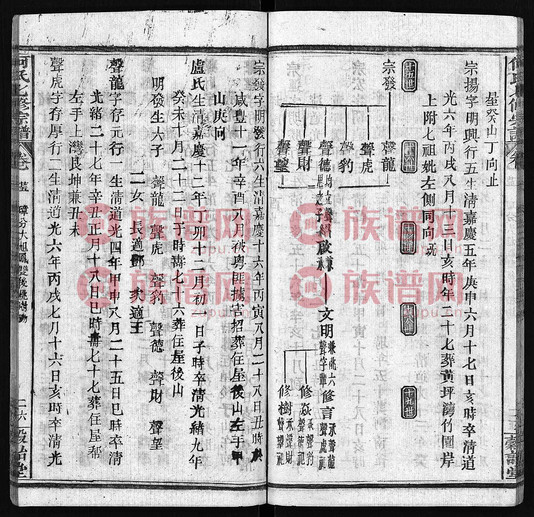 墨癸山丁向止
宗揚字明興行五生清嘉慶五年庚申六月十七日亥時卒清道
光六年丙戌八月十三日亥時年二十七葬黃坪灣竹園岸
上附七祖妣左側同向
宗發
聲龍
聲虎
聲豹
聲德
聲財
聲望
紹啟
文明
修言
修㷼
修樹
宗發字明發行六生清嘉慶十六年丙寅八月二十八日丑時
咸豐十一年辛酉八月被粵匪擄去招葬住屋後山左手甲
山庚向
盧氏生清嘉慶十二年丁卯十二月初一日子時卒清光緒九年
癸未十月二十二日子時壽七十六葬住屋後山
明發生六子 聲龍 聲虎 聲豹 聲德 聲財 聲望
二女 長適鄧 次適王
聲龍字存元行一生清道光四年甲申八月二十五日巳時卒清
光緒二十七年辛丑正月十八日巳時壽七十七葬住屋鄰
左手上灣艮坤兼丑未
聲虎字存厚行二生清道光六年丙戌七月十六日亥時卒清光
何氏七修宗譜
卷
二六
敦詒堂
族谱网